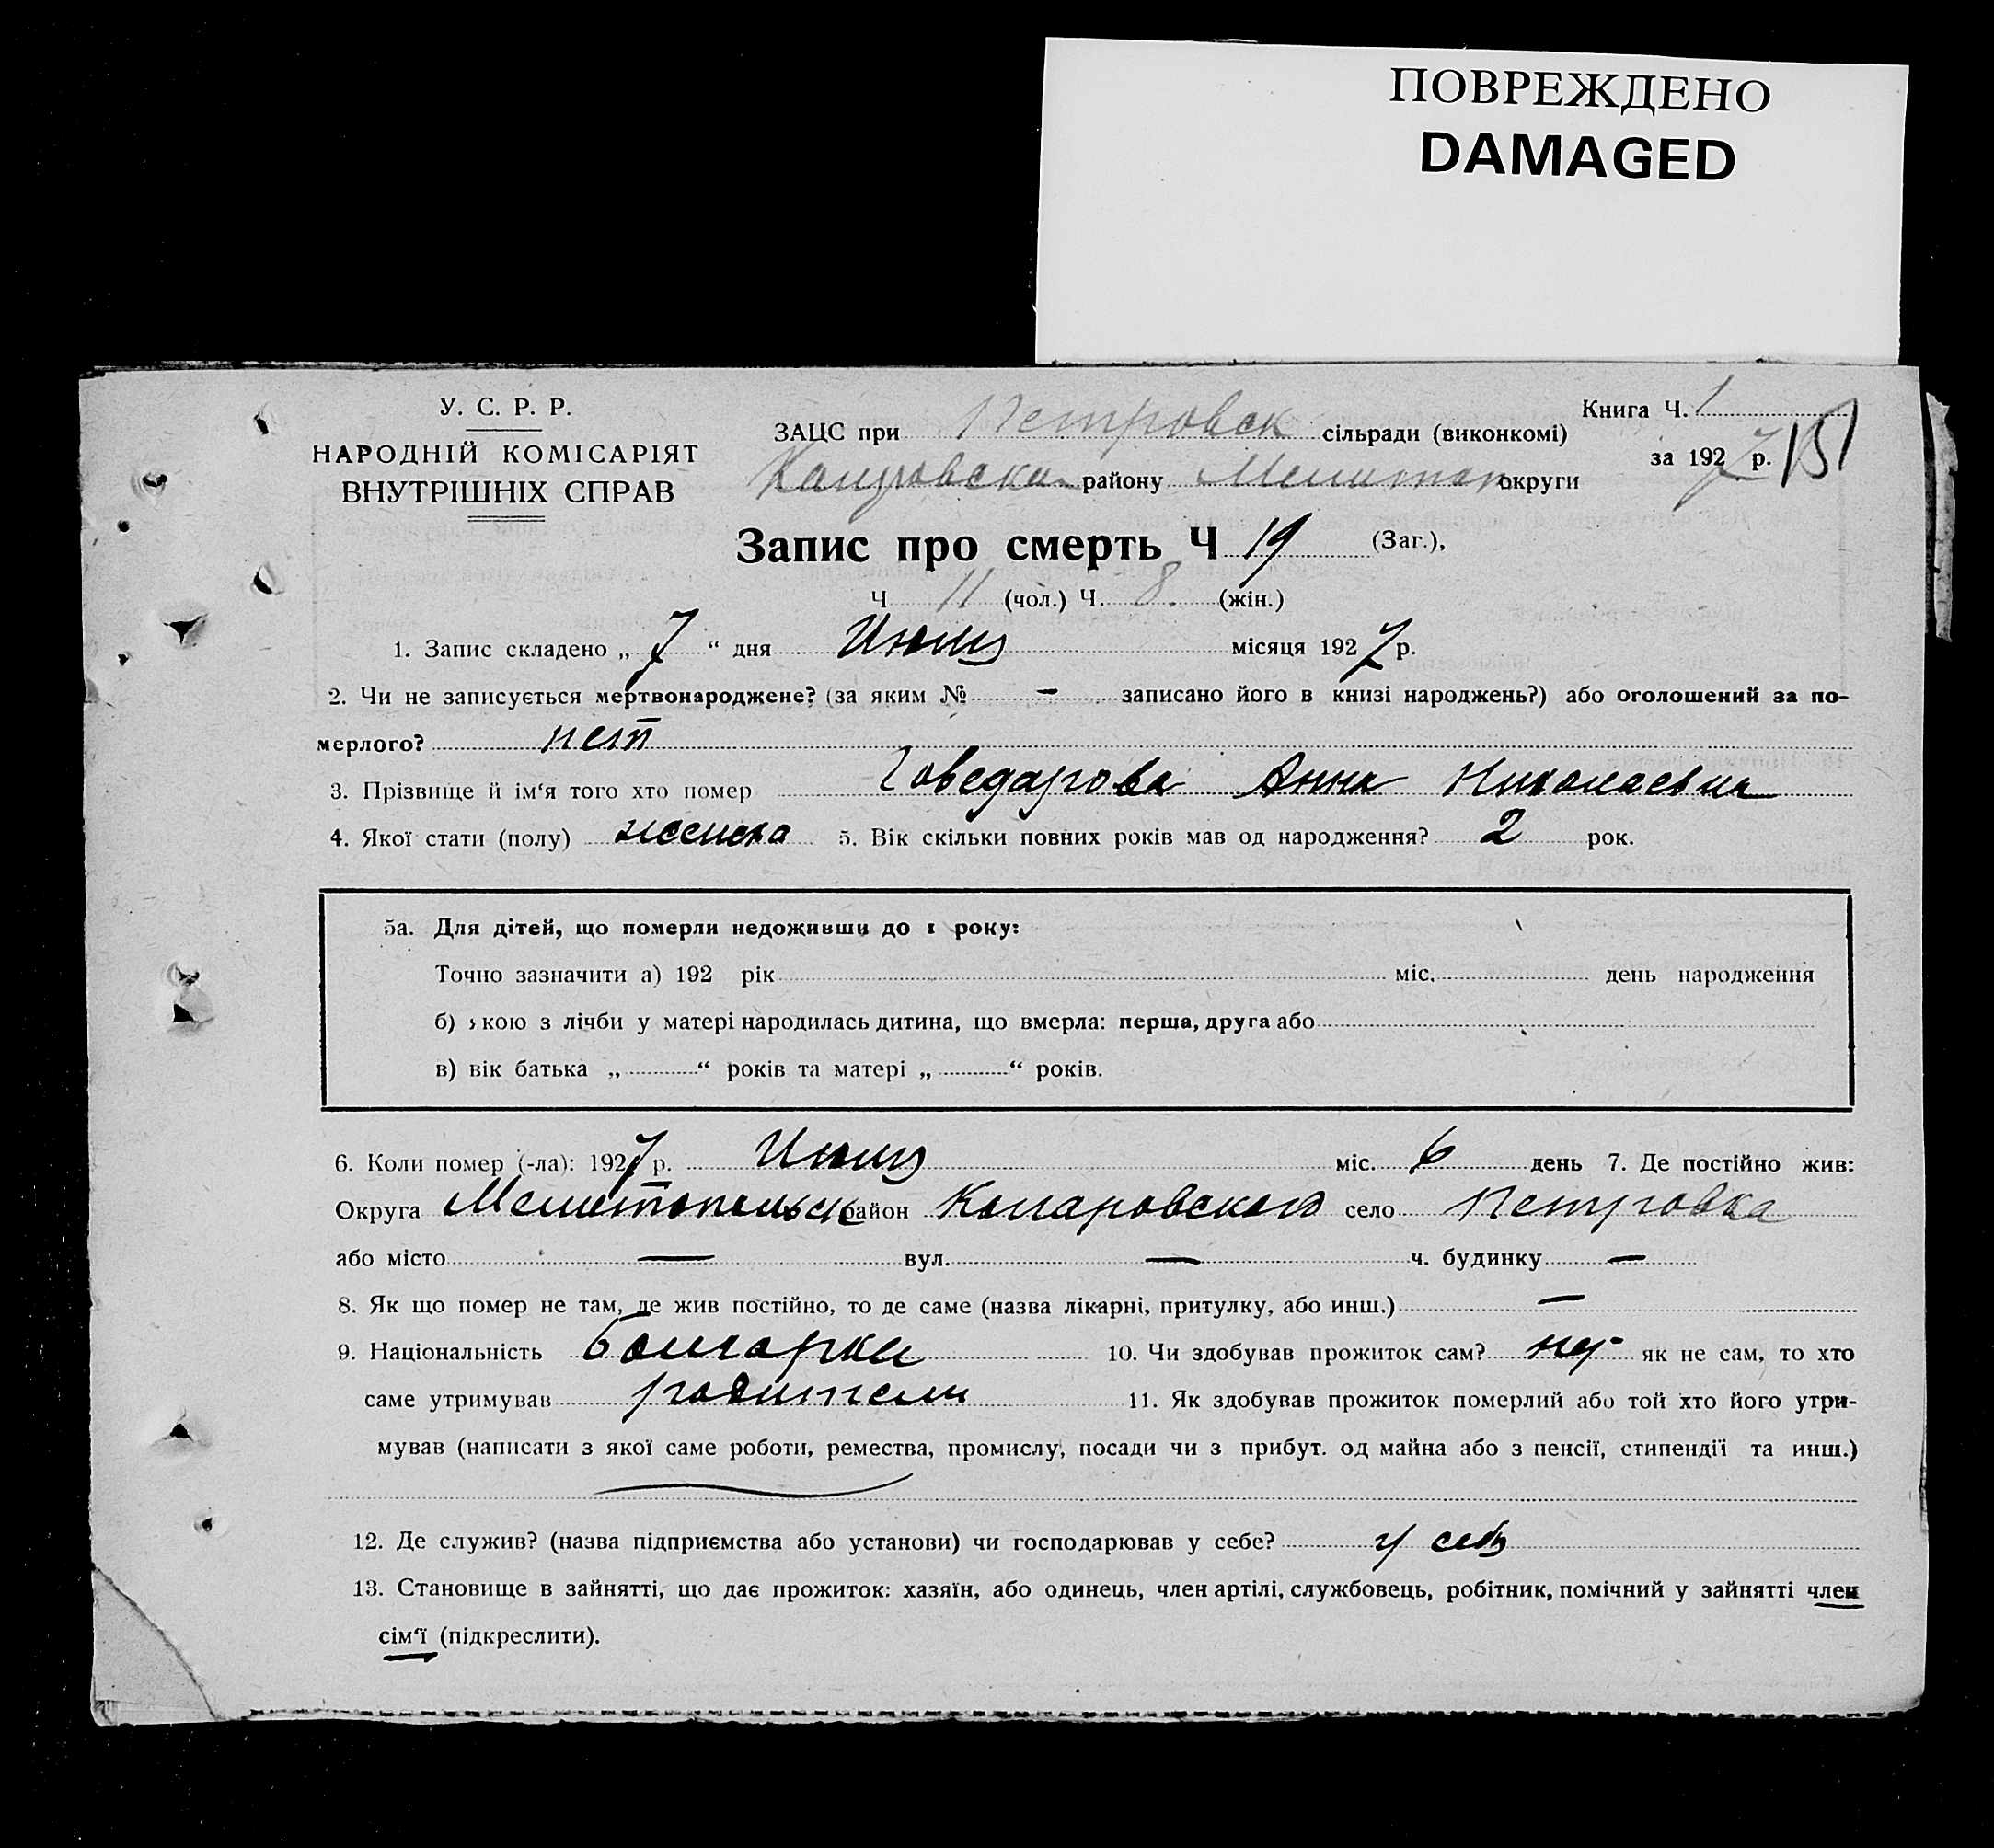 ПОВРЕЖДЕНО
DAMAGED
У. С. Р. Р.
НАРОДНІЙ КОМІСАРІЯТ
ВНУТРІШНІХ СПРАВ
Книга Ч. 1
за 1927 р. 151
ЗАЦС при Петровск сільради (виконкомі)
району Мелитоп округи
Запис про смерть Ч 19 (Заг.),
Ч 11 (чол.) Ч. 8. (жін.)
1. Запис складено „ 7 “ дня місяця 1927 р.
2. Чи не записується мертвонароджене? (за яким № — записано його в книзі народжень?) або оголошений за по-
мерлого? нет
3. Прізвище й ім‘я того хто помер Говедарова Анна Николаевна
4. Якої стати (полу) женска 5. Вік скільки повних років мав од народження? 2 рок.
5а. Для дітей, що померли недоживши до 1 року:
Точно зазначити а) 192 рік міс. день народження
б) якою з лічби у матері народилась дитина, що вмерла: перша, друга або
в) вік батька „ “ років та матері „ “ років.
6. Коли помер (-ла): 1927 р. міс. 6 день 7. Де постійно жив:
Округа Мелитопольск район село Петровка
або місто — вул. — ч. будинку —
8. Як що помер не там, де жив постійно, то де саме (назва лікарні, притулку, або инш.) —
9. Національність болгарка 10. Чи здобував прожиток сам? нет як не сам, то хто
саме утримував родители 11. Як здобував прожиток померлий або той хто його утри-
мував (написати з якої саме роботи, ремества, промислу, посади чи з прибут. од майна або з пенсії, стипендії та инш.)
12. Де служив? (назва підприємства або установи) чи господарював у себе? у себя
13. Становище в зайнятті, що дає прожиток: хазяїн, або одинець, член артілі, службовець, робітник, помічний у зайнятті член
сім‘ї (підкреслити).